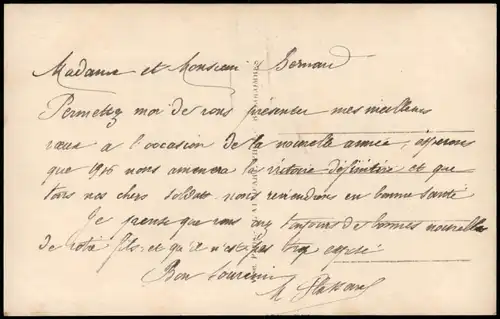 Madame et Monsieur Bernard
Permettez moi de vous présenter mes meilleurs
vœux a l'occasion de la nouvelle année, espérons
que 1916 nous amenera la victoire définitive et que
tous nos chers soldats nous reviendrons en bonne santé
Je pense que vous avez toujours de bonnes nouvelles
de votre fils, et qu'il n'est pas trop exposé
Bon Souvenir
M